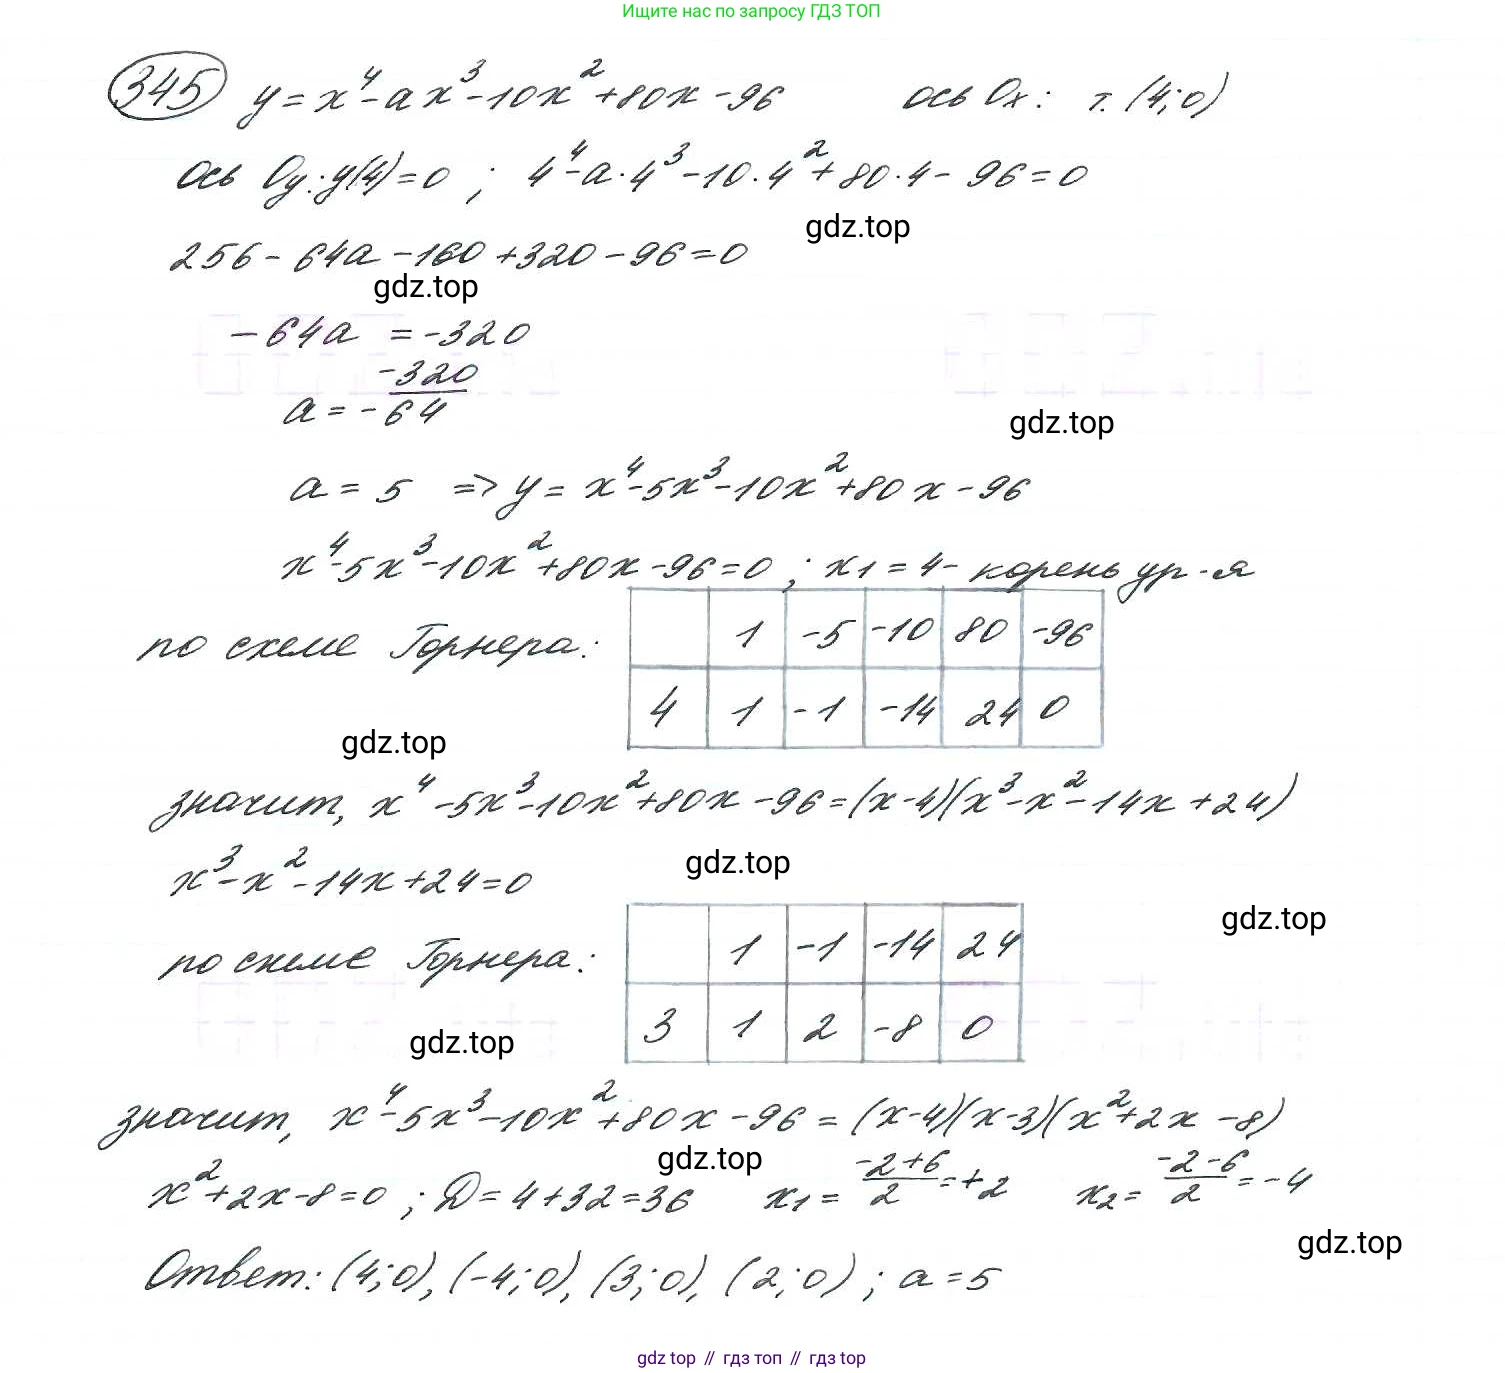 Ищите нас по запросу ГДЗ ТОП
345 y = x⁴ - ax³ - 10x² + 80x - 96 ось Ox: т. (4; 0)
ось Oy: y(4) = 0 ; 4⁴ - a · 4³ - 10 · 4² + 80 · 4 - 96 = 0
gdz.top
256 - 64a - 160 + 320 - 96 = 0
gdz.top
- 64a = -320
a = - -320/64
gdz.top
a = 5 => y = x⁴ - 5x³ - 10x² + 80x - 96
x⁴ - 5x³ - 10x² + 80x - 96 = 0 ; x₁ = 4 - корень ур-я
по схеме Горнера:
1 -5 -10 80 -96
4 1 -1 -14 24 0
gdz.top
значит, x⁴ - 5x³ - 10x² + 80x - 96 = (x - 4)(x³ - x² - 14x + 24)
gdz.top
x³ - x² - 14x + 24 = 0
gdz.top
по схеме Горнера:
1 -1 -14 24
3 1 2 -8 0
gdz.top
значит, x⁴ - 5x³ - 10x² + 80x - 96 = (x - 4)(x - 3)(x² + 2x - 8)
gdz.top
x² + 2x - 8 = 0 ; D = 4 + 32 = 36 x₁ = -2+6/2 = +2 x₂ = -2-6/2 = -4
gdz.top
Ответ: (4; 0), (-4; 0), (3; 0), (2; 0) ; a = 5
gdz top // гдз топ // гдз top